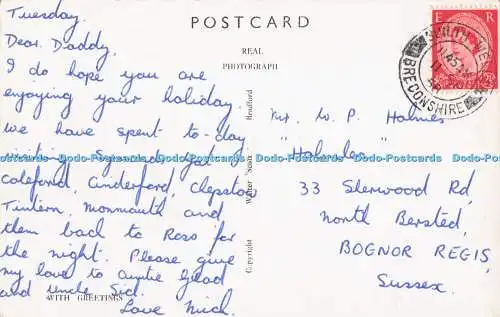 POSTCARD
REAL
PHOTOGRAPH
Tuesday.
Dear Daddy,
I do hope you are
enjoying your holiday.
We have spent to-day
visiting Symonds Yat,
Coleford, Cinderford, Chepstow
Tintern, Monmouth and
then back to Ross for
the night. Please give
my love to auntie Glad
and uncle Sid.
Love Nick.
WITH GREETINGS
Copyright Walter Scott Bradford
E R
BUILTH WE
BRECONSHIRE
Mr. W. P. Holmes
33 Sherwood Rd,
North Bersted,
BOGNOR REGIS,
Sussex.
Dodo-Postcards Dodo-Postcards Dodo-Postcards Dodo-Postcards Dodo-Postcards